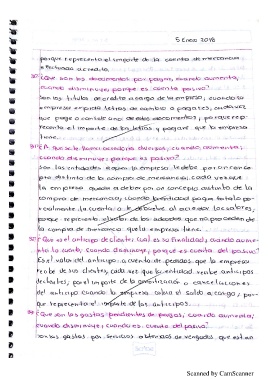 5 Enero 2018
porque representa el importe de la cuenta de mercancia
o entrada a credito.
30¿Que son los documentos por pagar, cuando aumenta,
cuando disminuye, porque es cuenta pasivo?
Son los titulos de credito a cargo de la empresa; cuando la
empresa expida letras de cambio o pagares; cada vez
que pague o cancele uno de estos documentos; porque rep-
resenta el importe de las letras y pagare que la empresa
tiene.
31¿A que se le llama acreedores diversos, cuando aumenta,
cuando disminuye, porque es pasivo?
Son las entidades a quien la empresa le debe por un conce-
pto distinto de la compra de mercancias; cada vez que
la empresa quede a deber por un concepto distinto de la
compra de mercancia; cuando la entidad pague total o pa-
rcialmente la cuenta
porque representa el valor de los adeudos que no proceden de
la compra de mercancia que la empresa tiene.
32¿Que es el anticipo de clientes, cual es su finalidad, cuando aumen-
ta la cuenta, cuando disminuye, porque es cuenta del pasivo?
Es el valor del anticipo a cuenta de pedidos que la empresa
recibe de sus clientes, cada vez que la entidad recibe anticipos
de clientes, por el importe de la
del anticipo cuando la empresa el saldo a cargo, por-
que representa el importe de los anticipos.
¿Que son los gastos pendientes de pagar, cuando aumenta,
cuando disminuye, cuando es cuenta del pasivo?
Son los gastos por servicios obtenidos devengados que estan
Scanned by CamScanner